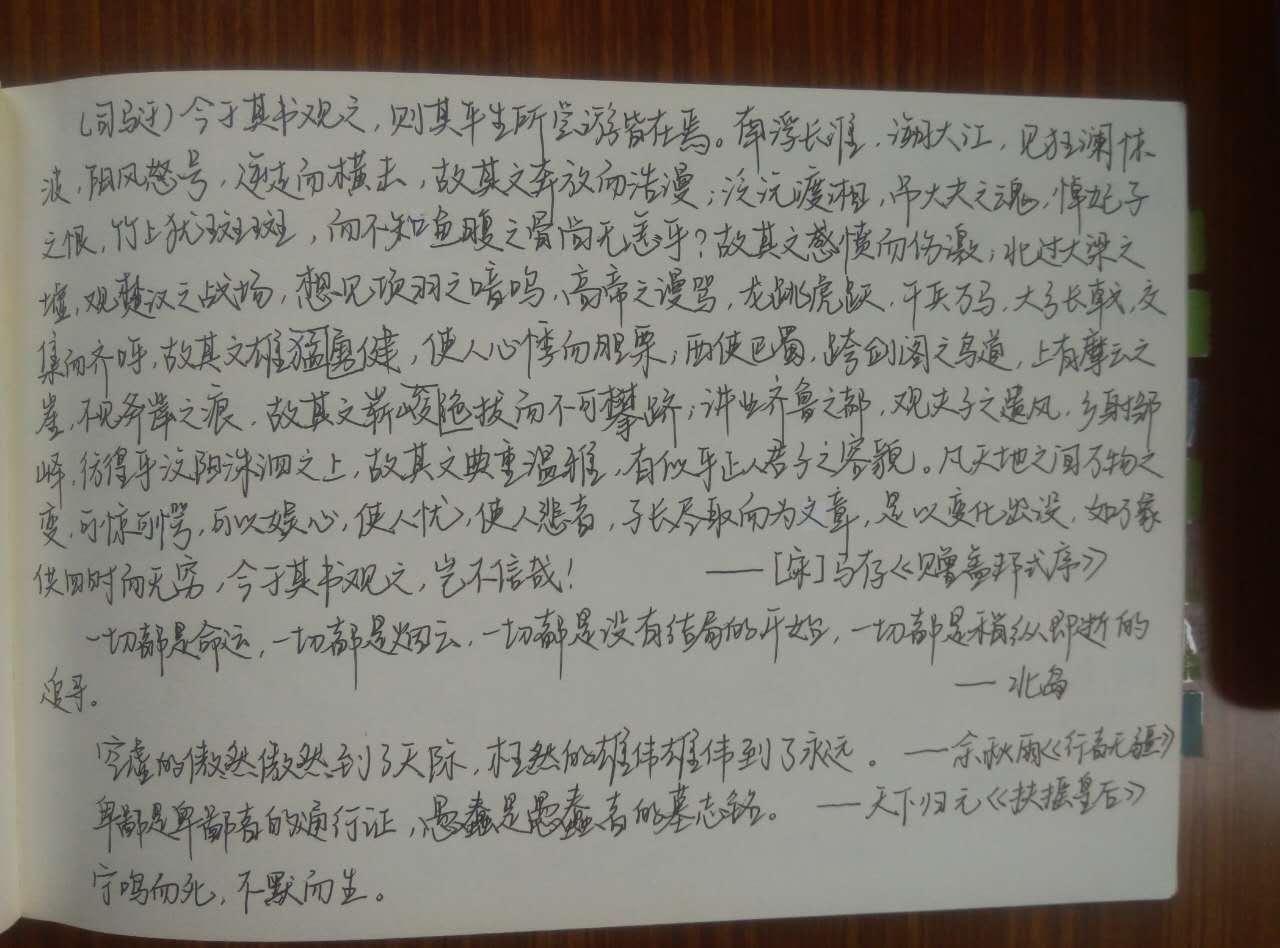 (司马迁)今于其书观之，则其平生所尝游皆在焉。南浮长淮，溯大江，见狂澜惊
波，阴风怒号，逆走而横击，故其文奔放而浩漫；泛沅渡湘，吊大夫之魂，悼妃子
之恨，竹上犹斑斑，而不知鱼腹之骨尚无恙乎？故其文感愤而伤激；北过大梁之
墟，观楚汉之战场，想见项羽之喑呜，高帝之谩骂，龙跳虎跃，千兵万马，大弓长戟，交
集而齐呼，故其文雄猛勇健，使人心悸而胆栗；西使巴蜀，跨剑阁之鸟道，上有摩云之
崖，不见斧凿之痕，故其文崭峻陡拔而不可攀跻；讲业齐鲁之都，观夫子之遗风，乡射邹
峄，彷徨乎汶阳洙泗之上，故其文典重温雅，有似乎正人君子之容貌。凡天地之间万物之
变，可惊可愕，可以娱心，使人忧，使人悲者，子长尽取而为文章，是以变化出没，如万象
供四时而无穷，今于其书观之，岂不信哉！ ——[宋]马存《赠盖邦式序》
一切都是命运，一切都是烟云，一切都是没有结局的开始，一切都是稍纵即逝的
追寻。 —北岛
空虚的傲然傲然到了天际，枉然的雄伟雄伟到了永远。 ——余秋雨《行者无疆》
卑鄙是卑鄙者的通行证，愚蠢是愚蠢者的墓志铭。 ——天下归元《扶摇皇后》
宁鸣而死，不默而生。